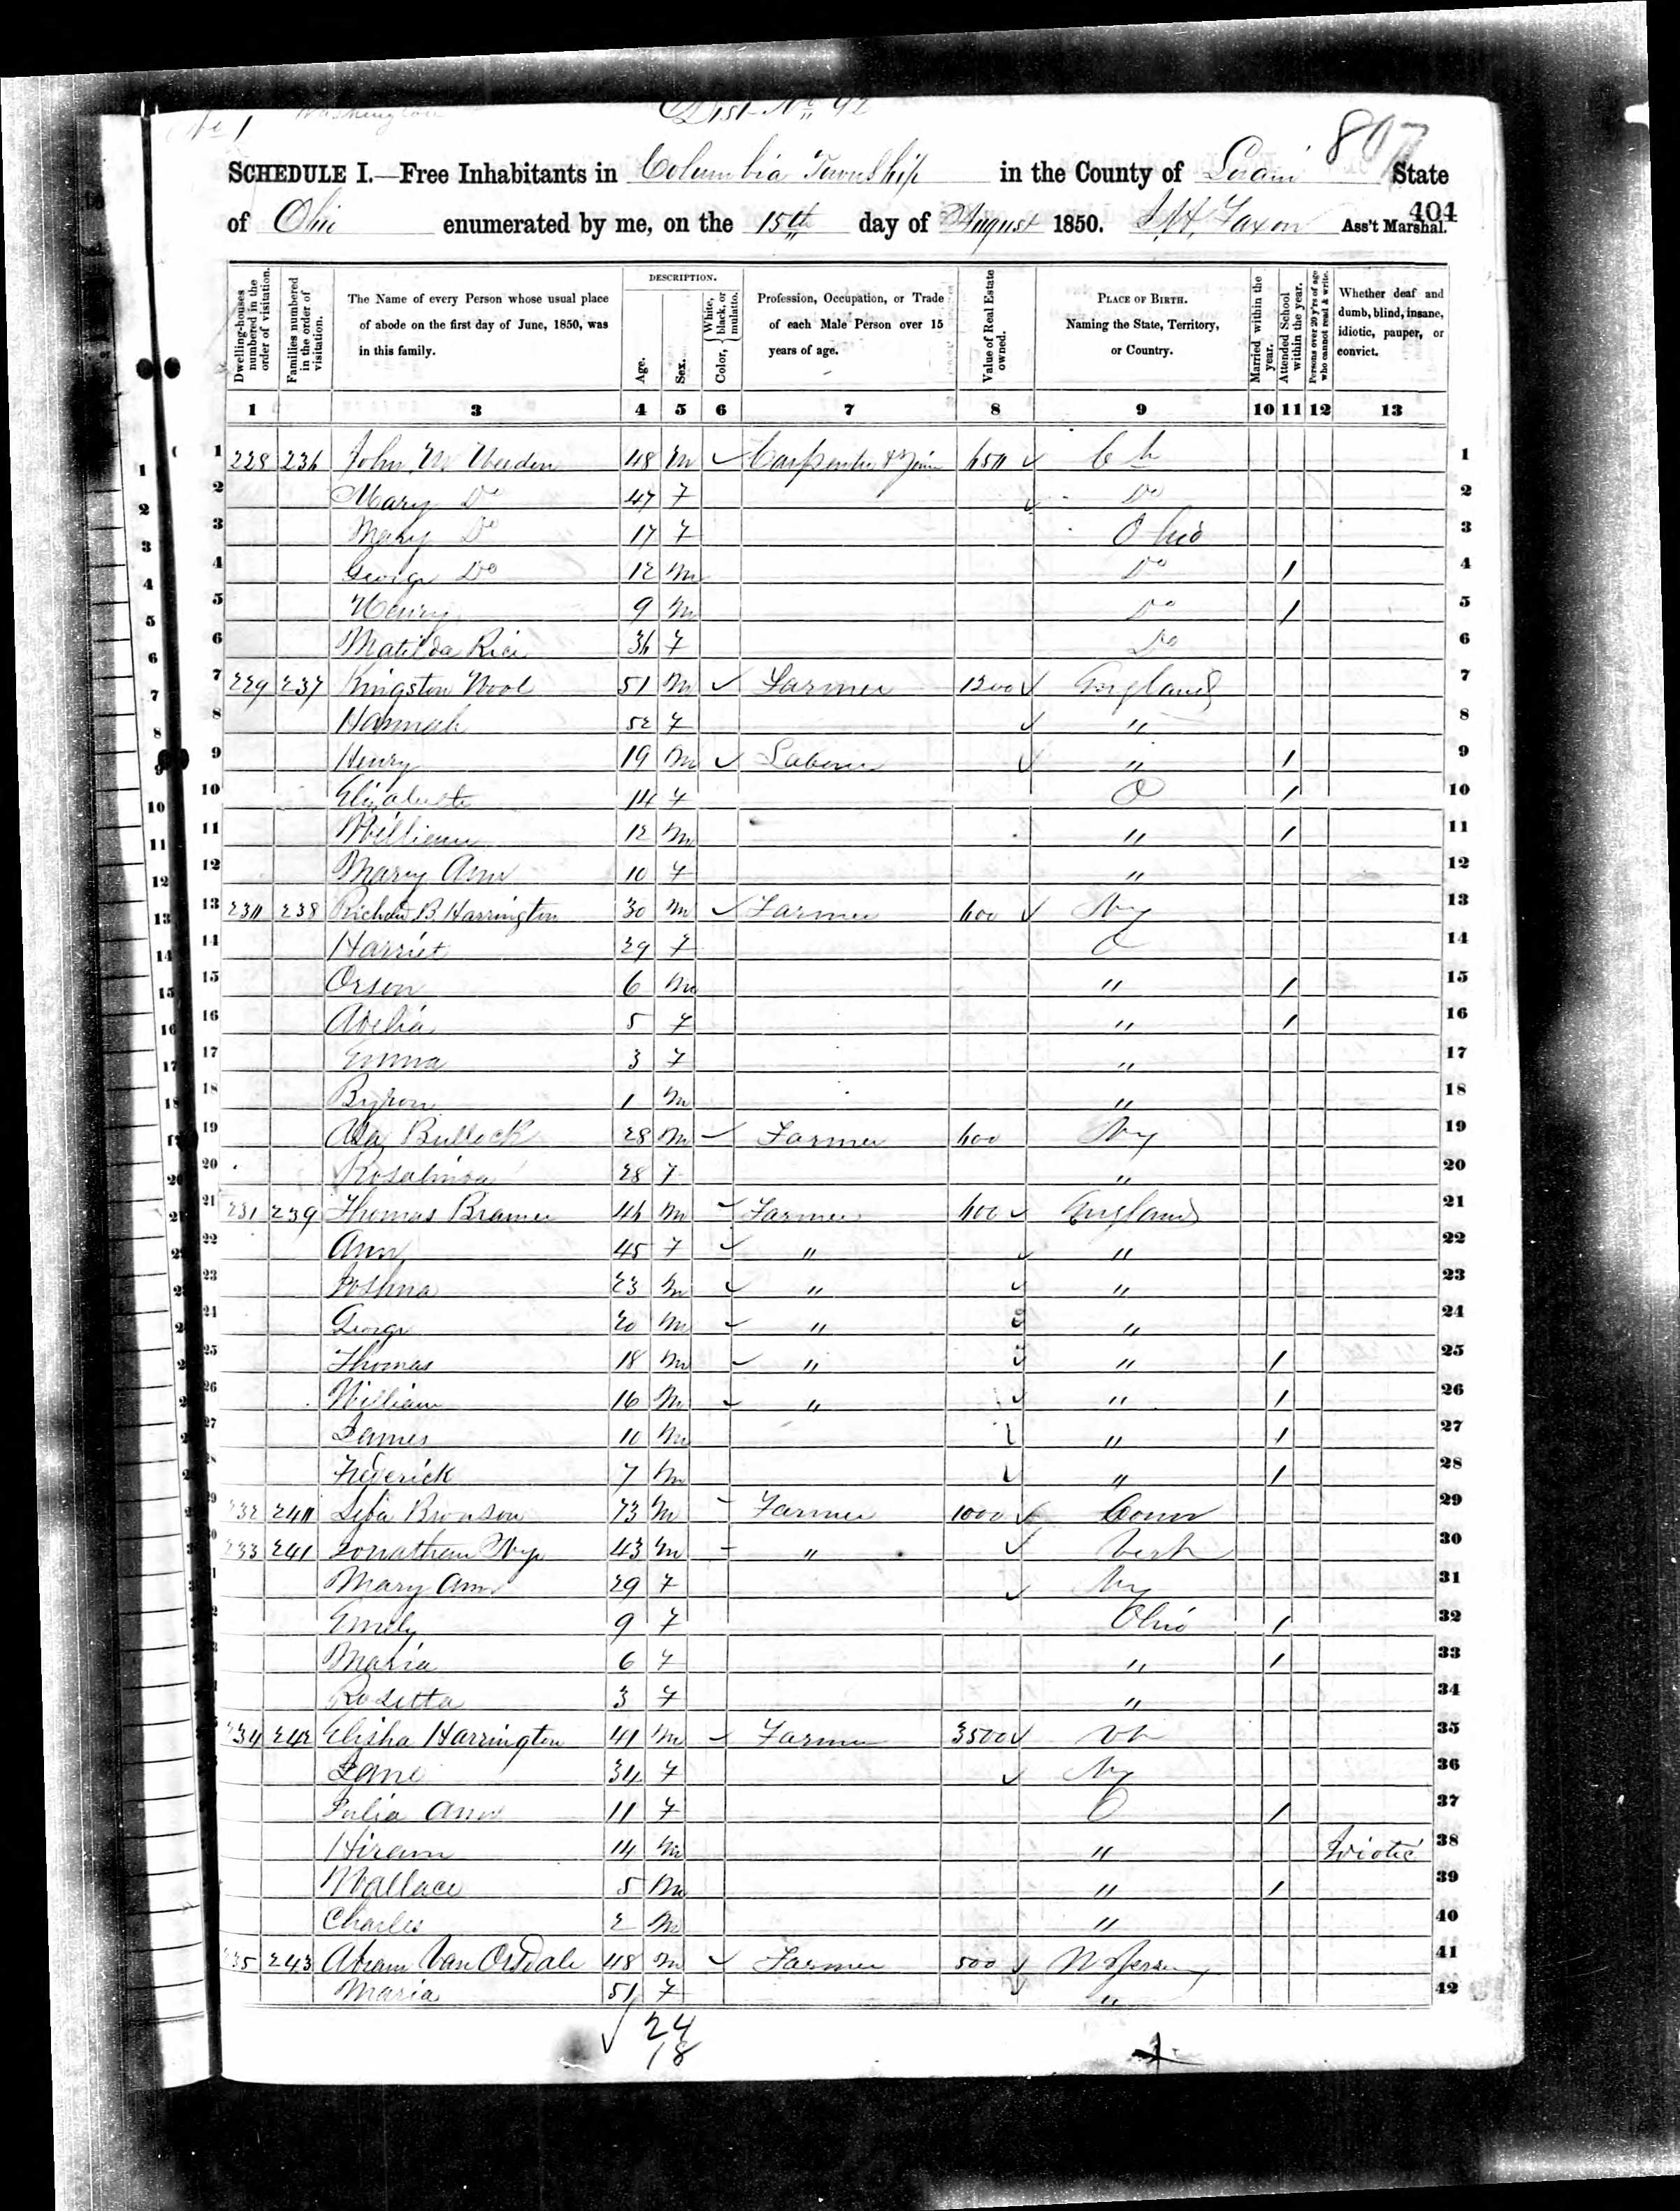 No 1 Washington Dist No 92
807
SCHEDULE I.—Free Inhabitants in Columbia Township in the County of Lorain State
of Ohio enumerated by me, on the 15th day of August 1850. Faxon Ass't Marshal.
404
Dwelling-houses numbered in the order of visitation.
Families numbered in the order of visitation.
The Name of every Person whose usual place of abode on the first day of June, 1850, was in this family.
DESCRIPTION.
Age.
Sex.
Color, { White, black, or mulatto.
Profession, Occupation, or Trade of each Male Person over 15 years of age.
Value of Real Estate owned.
PLACE OF BIRTH. Naming the State, Territory, or Country.
Married within the year.
Attended School within the year.
Persons over 20 y'rs of age who cannot read & write.
Whether deaf and dumb, blind, insane, idiotic, pauper, or convict.
1 3 4 5 6 7 8 9 10 11 12 13
1 228 236 John M Weeden 48 M ✓ 650 ✓ 1
2 Mary Do 47 F ✓ Do 2
3 Mary Do 17 F Ohio 3
4 George Do 12 M Do / 4
5 Henry 9 M Do / 5
6 Matilda Rice 36 F Do 6
7 229 237 Kingston Wool 51 M ✓ Farmer 1200 ✓ England 7
8 Hannah 52 F ✓ " 8
9 Henry 19 M ✓ Laborer ✓ " / 9
10 Elizabeth 14 F O / 10
11 William 12 M " / 11
12 Mary Ann 10 F " 12
13 230 238 Richard B Harrington 30 M ✓ Farmer 600 ✓ Ny 13
14 Harriet 29 F O 14
15 Orson 6 M " / 15
16 Adelia 5 F " / 16
17 Emma 3 F " 17
18 Byron 1 M " 18
19 Asa Bullock 28 M ✓ Farmer 600 Ny 19
20 Rosalinda 28 F " 20
21 231 239 Thomas Bramer 46 M ✓ Farmer 600 ✓ England 21
22 Ann 45 F ✓ " ✓ " 22
23 Joshua 23 M ✓ " ✓ " 23
24 George 20 M ✓ " ✓ " 24
25 Thomas 18 M ✓ " ✓ " / 25
26 William 16 M ✓ " ✓ " / 26
27 James 10 M " / 27
28 Frederick 7 M ✓ " / 28
29 232 240 Seba Bronson 73 M Farmer 1000 ✓ Conn 29
30 233 241 Jonathan 43 M " ✓ 30
31 Mary Ann 29 F ✓ Ny 31
32 Emily 9 F Ohio / 32
33 Maria 6 F " / 33
34 Rosetta 3 F " 34
35 234 242 Elisha Harrington 41 M ✓ Farmer 3500 ✓ Vt 35
36 Jane 34 F ✓ Ny 36
37 Julia Ann 11 F O / 37
38 Hiram 14 M " Idiotic 38
39 Wallace 5 M " / 39
40 Charles 2 M " 40
41 235 243 Abram Van Orsdale 48 M ✓ Farmer 500 ✓ N Jersey 41
42 Maria 51 F ✓ " 42
24
18